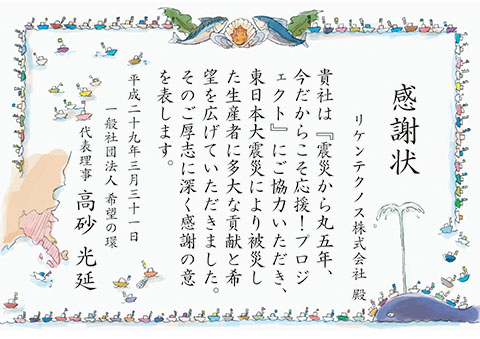 感謝状
リケンテクノス株式会社 殿
貴社は『震災から丸五年、
今だからこそ応援！プロジ
ェクト』にご協力いただき、
東日本大震災により被災し
た生産者に多大な貢献と希
望を広げていただきました。
そのご厚志に深く感謝の意
を表します。
平成二十九年三月三十一日
一般社団法人 希望の環
代表理事 高砂 光延